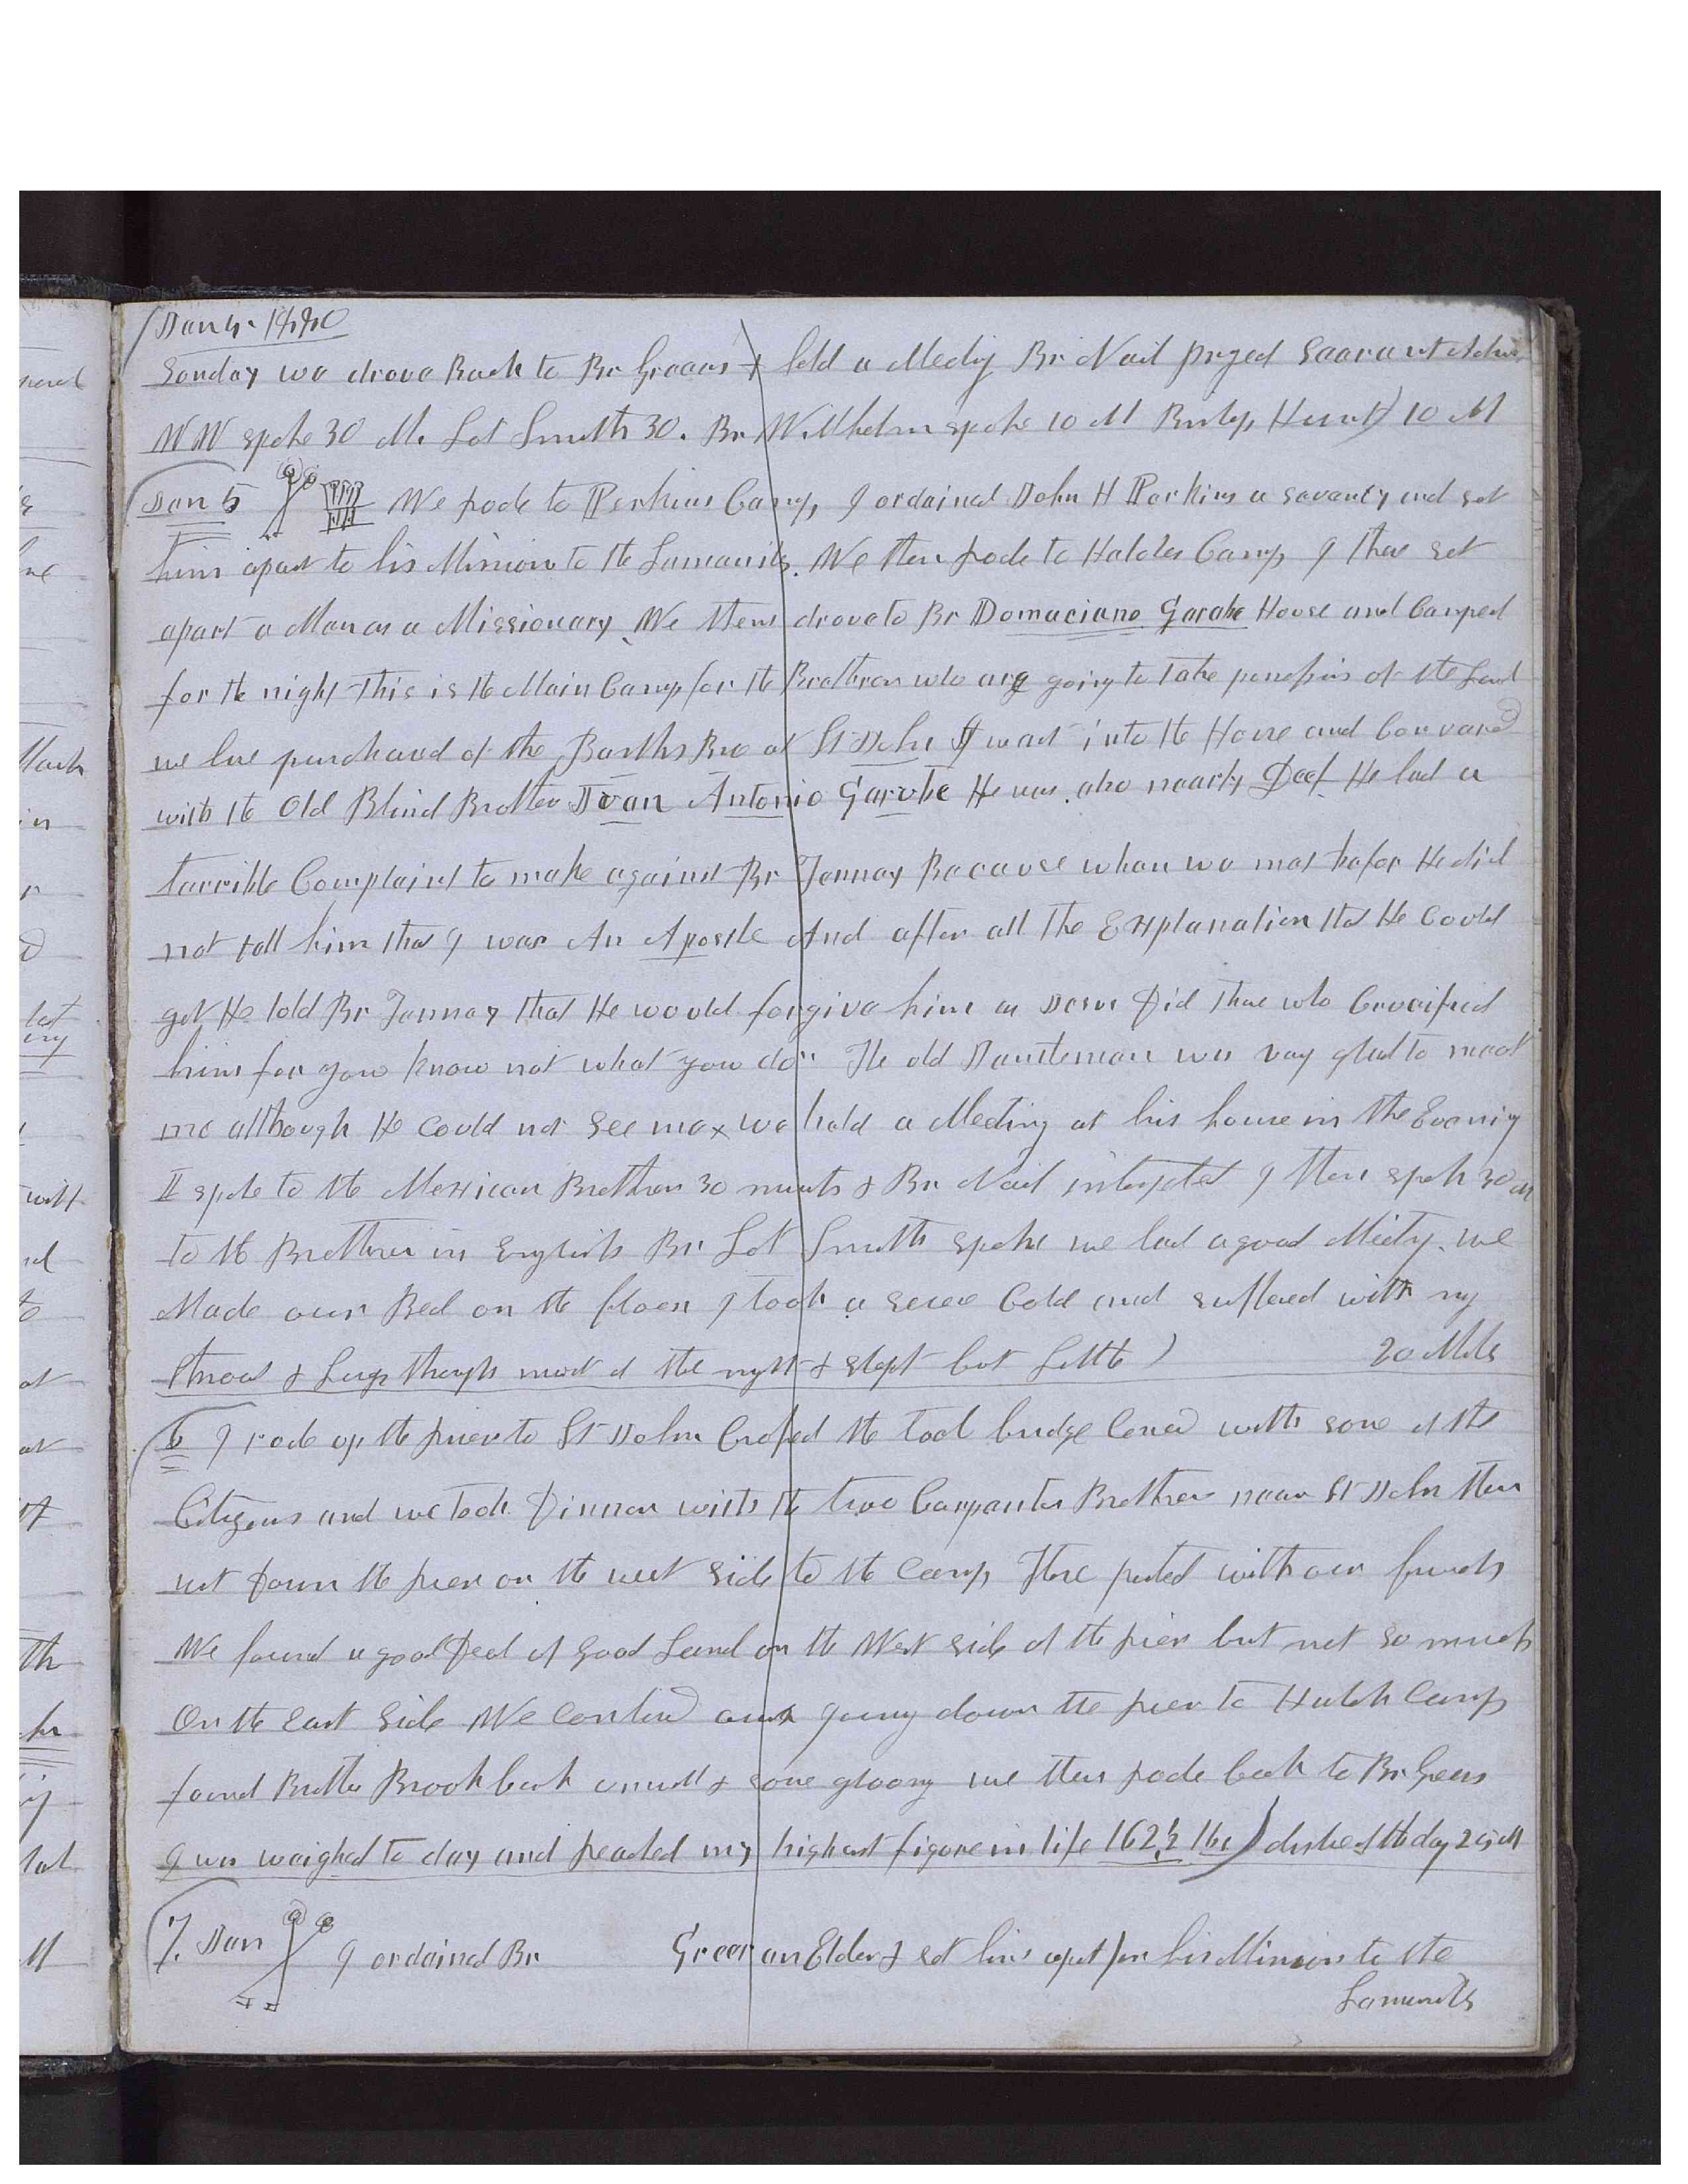 Jan 4. 1880
Sunday we drove Back to Br Greens & held a Meeting Br Nail prayed Sacrament Adm
WW spoke 30 M. Lot Smith 30. Br Wilhelm spoke 10 M Bishop Hunt 10 M
Jan 5 We rode to Perkins Camp, I ordained John H Perkins a seventy and set
him apart to his Mission to the Lamanites. We then rode to Camp I there set
apart a Man as a Missionary We then drove to Br Domaciano Garake House and Camped
for the night This is the Main Camp for the Brethren who are going to take possession of the Land
we have purchased of the Barths Bro at St John I went into the House and Convered
with the Old Blind Brother Juan Antonio Garoke He was also nearly Deef He had a
terrible Complaint to make against Br Tenney Because when we met befor He did
not tell him that I was An Apostle And after all the Explanation that He Could
get He told Br Tenney that He would forgive him as Jesus Did those who Crucified
him for you know not what you do" The old was vary glad to meet
me although He Could not See me we held a Meeting at his house in the Evening
I spoke to the Mexican Brethren 30 minuts & Br Nail interpeted I then spoke 30 M
to the Brethren in English Br Lot Smith spoke we had a good Meeting. we
Made our Bed on the floor I took a severe Cold and suffered with my
throat & Lungs through most of the night & slept but Little) 20 Miles
6 I rode up the river to St John Crossed the toal bridge Convd with some of the
Citizens and we took Dinner with the two Carpenter Brothers near St John then
wnt Down the river on the west Side to the Camp There parted with our friends
We found a good Deal of good Land on the West side of the river but not so much
On the East Side We Contind our jurny down the river to Camp
found Brother Brookbank unwell & some gloomy we then rode back to Br Greens
I was weighed to day and reached my highest figure in life 162½ lbs) distance of the day 25 M
7. Jan I ordained Br Greer an Elder & set him apart for his Mission to the
Lamanits